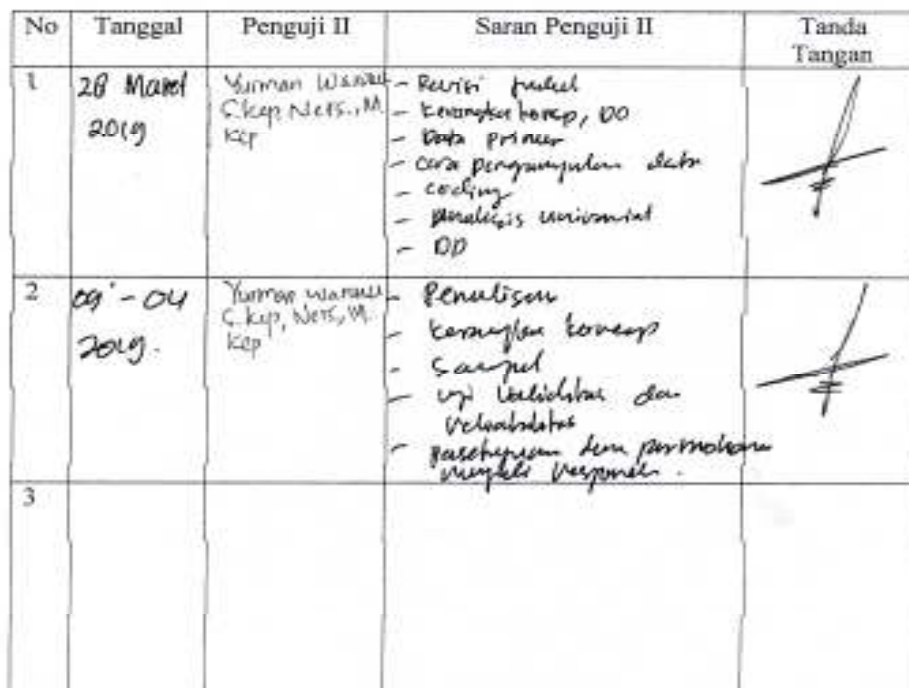 No Tanggal Penguji II Saran Penguji II Tanda Tangan
1 28 Maret 2019
Yurman
S.kep, Ners., M.
kep
- Revisi judul
- Kerangka konsep, DO
- Data primer
- cara pengumpulan data
- coding
- analisis univariat
- DO
2 09 - 04
2019.
Yurman
S.kep, Ners, M.
kep
- Penulisan
- kerangka konsep
- Sampel
- uji validitas dan
reliabilitas
- dan permohonan
menjadi responden.
3